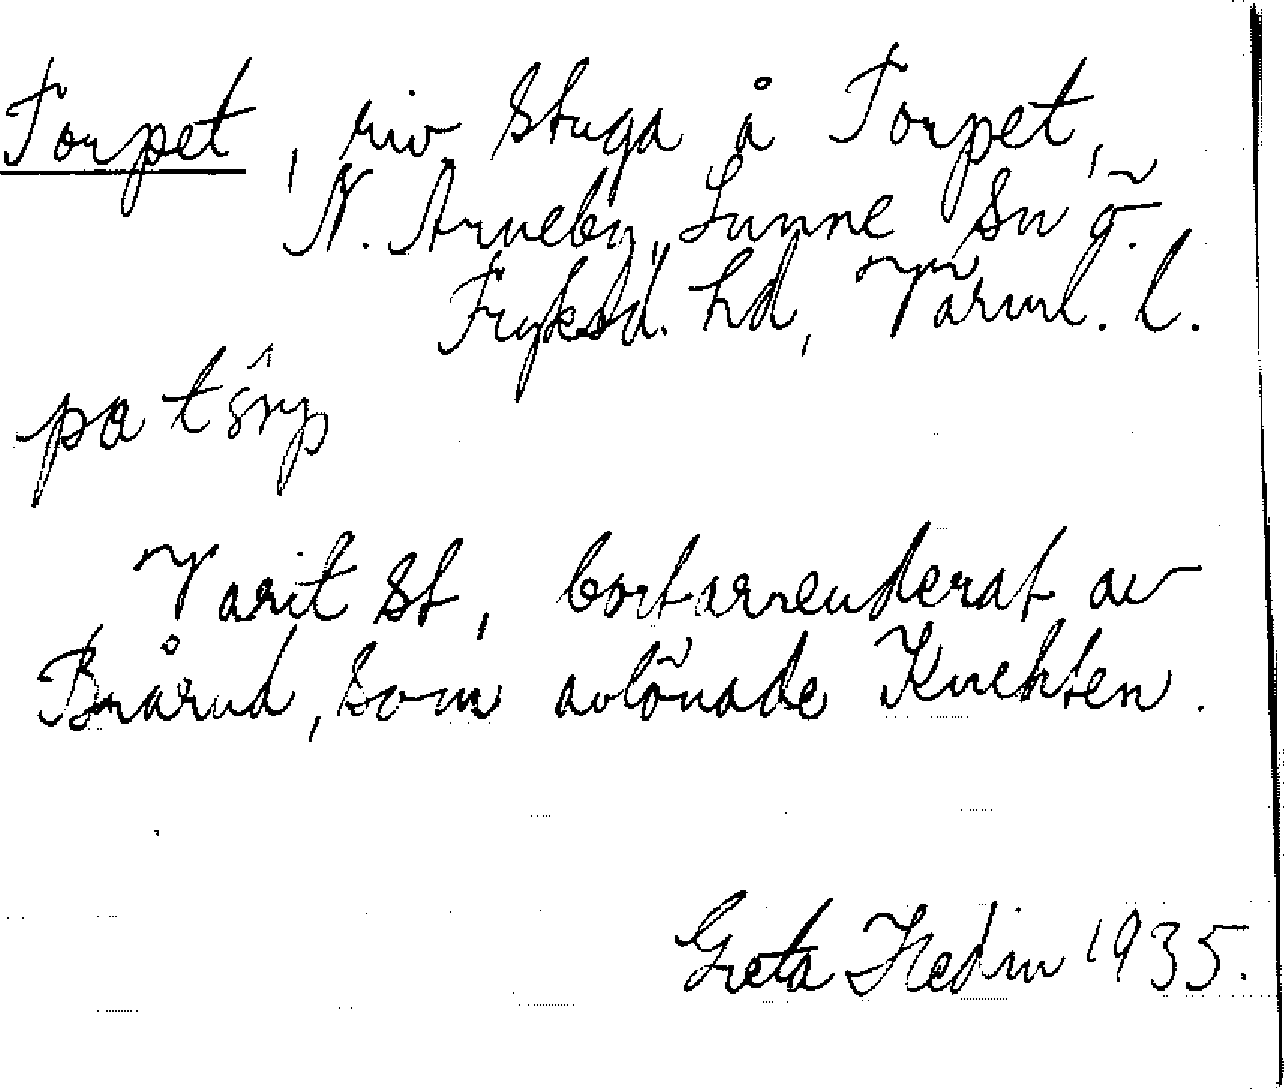 Torpet, riv stuga å Torpet,
N. Arneby, Sunne sn ö.
Fryksd. hd, Värml. l.
pa tôrp
Varit st, bortarrenderat av
Brårud, som avlönade Knekten.
Greta Hedin 1935.